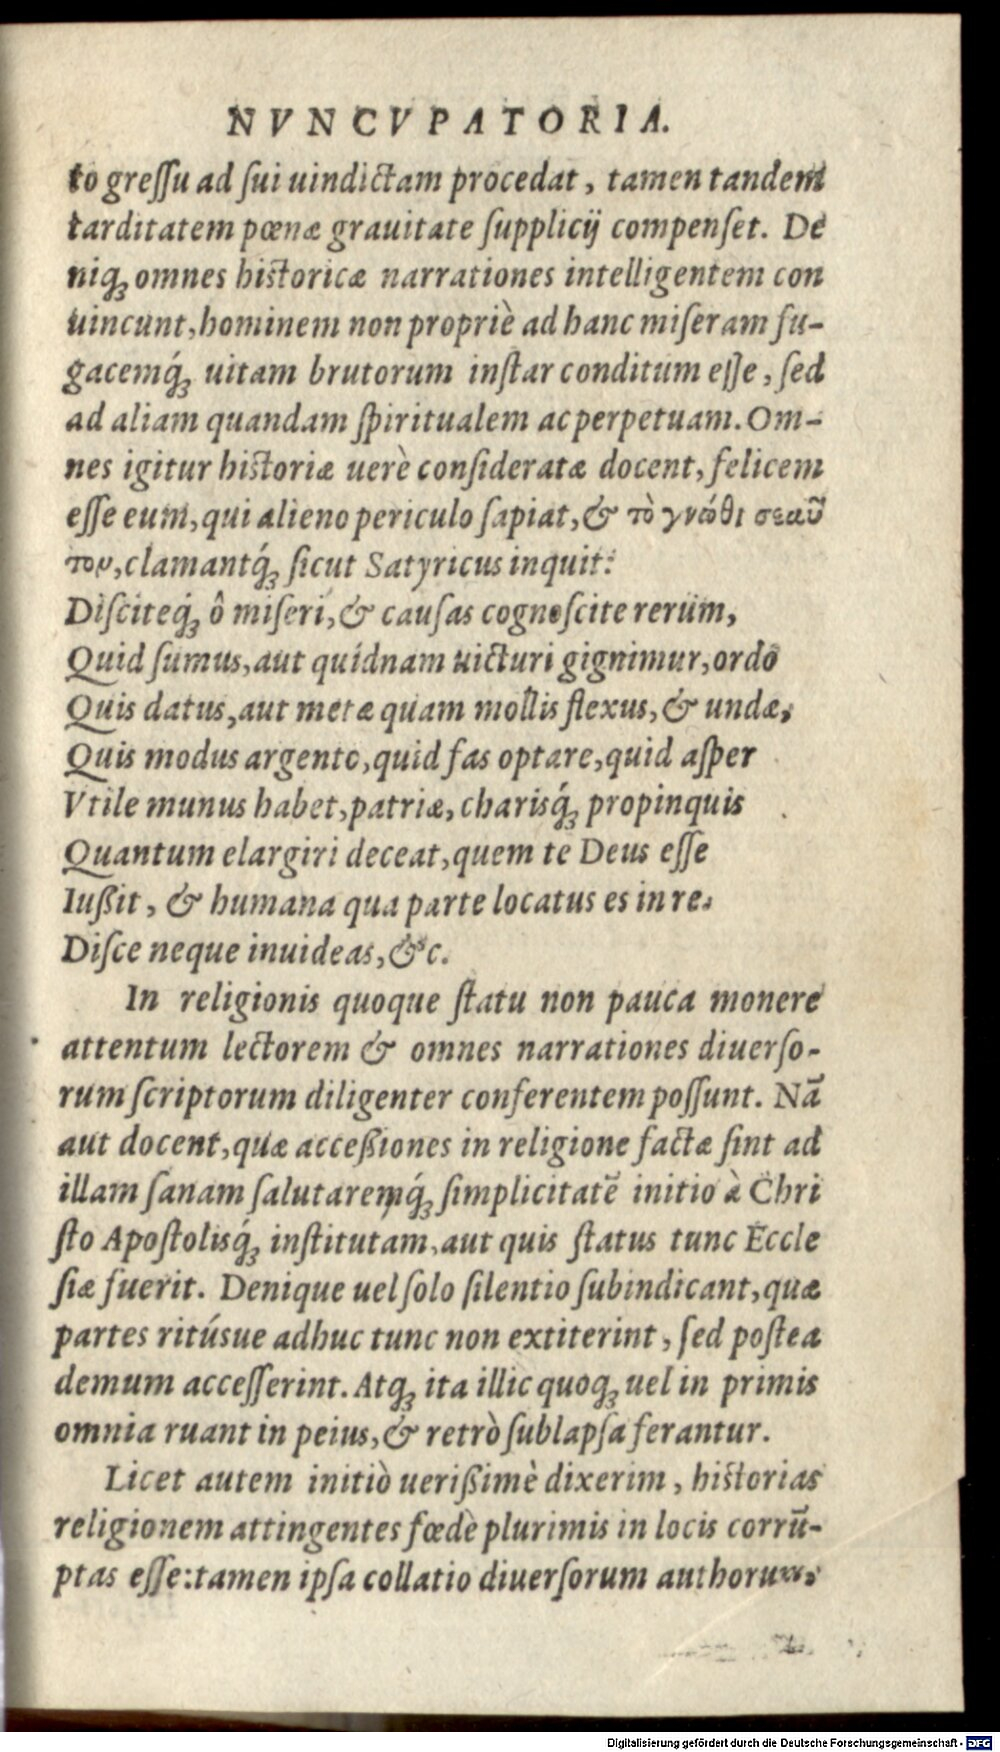 NVNCVPATORIA.
to greſſu ad ſui uindictam procedat, tamen tandem
tarditatem pœnæ grauitate ſupplicij compenſet. De
niqꝫ omnes historicæ narrationes intelligentem con
uincunt, hominem non propriè ad hanc miſeram fu-
gacemq́ꝫ uitam brutorum inſtar conditum eſſe, ſed
ad aliam quandam ſpiritualem ac perpetuam. Om-
nes igitur historiæ uerè conſideratæ docent, felicem
eſſe eum, qui alieno periculo ſapiat, & τὸ γνῶθι σεαῦ
τον, clamantq́ꝫ ſicut Satyricus inquit:
Diſciteq́ꝫ ô miſeri, & cauſas cognoſcite rerum,
Quid ſumus, aut quidnam uicturi gignimur, ordo
Quis datus, aut metæ quam mollis flexus, & undæ,
Quis modus argento, quid fas optare, quid aſper
Vtile munus habet, patriæ, charisq́ꝫ propinquis
Quantum elargiri deceat, quem te Deus eſſe
Iußit, & humana qua parte locatus es in re.
Diſce neque inuideas, &c.
In religionis quoque ſtatu non pauca monere
attentum lectorem & omnes narrationes diuerſo-
rum ſcriptorum diligenter conferentem poſſunt. Nã
aut docent, quæ acceßiones in religione factæ ſint ad
illam ſanam ſalutaremq́ꝫ ſimplicitatẽ initio à Chri
ſto Apoſtolisq́ꝫ inſtitutam, aut quis ſtatus tunc Eccle
ſiæ fuerit. Denique uel ſolo ſilentio ſubindicant, quæ
partes ritúsue adhuc tunc non extiterint, ſed poſtea
demum acceſſerint. Atqꝫ ita illic quoqꝫ uel in primis
omnia ruant in peius, & retrò ſublapſa ferantur.
Licet autem initiò uerißimè dixerim, historias
religionem attingentes fœdè plurimis in locis corrũ-
ptas eſſe: tamen ipſa collatio diuerſorum authorum,
Digitalisierung gefördert durch die Deutsche Forschungsgemeinschaft - DFG